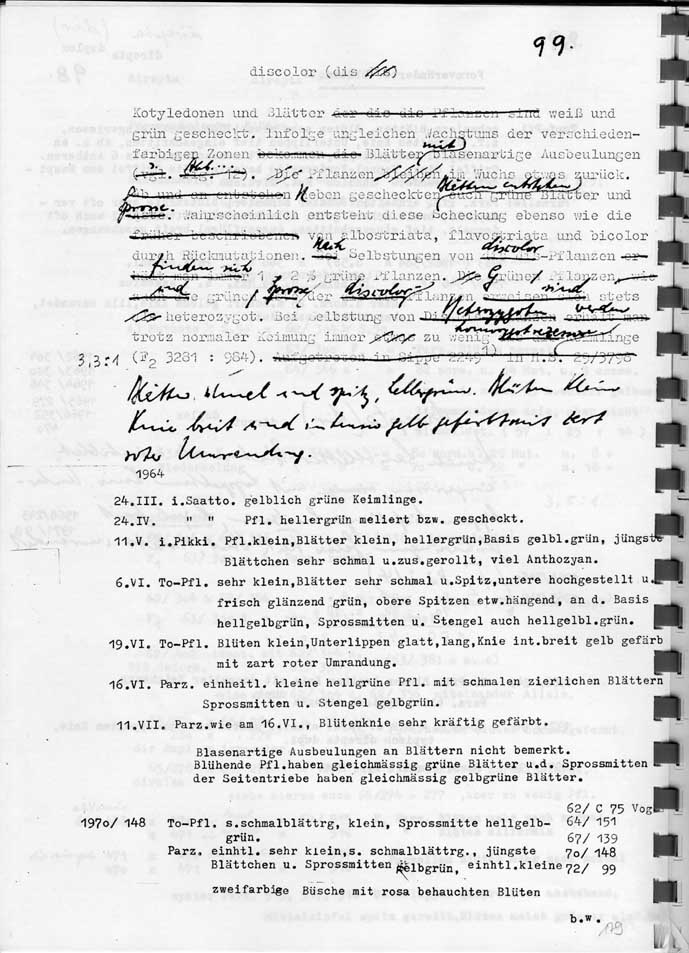 99.
discolor (dis dis)
Kotyledonen und Blätter der die dis-Pflanzen sind weiß und
grün gescheckt. Infolge ungleichen Wachstums der verschieden-
farbigen Zonen bekommen die Blätter mit blasenartige Ausbeulungen
(vgl. Abb. ...). Die Pflanzen bleiben im Wuchs etwas zurück.
Ab und an entstehen Neben gescheckten auch grüne Blätter und
Sprosse. Wahrscheinlich entsteht diese Scheckung ebenso wie die
früher beschriebenen von albostriata, flavostriata und bicolor
durch Rückmutationen. Nach Selbstungen von discolor dis-Pflanzen
finden sich immer 1 - 2 % grüne Pflanzen. Die Grüne Pflanzen, wie
und die grünen Sprosse der discolor-Pflanzen erweisen sich sind stets
heterozygot. Bei Selbstung von Heterozygoten werden
trotz normaler Keimung immer etwas zu wenig Keimlinge
3,3:1 (F2 3281 : 984). Aufgetreten in Sippe 2249 in M.B. 29/3796
Blätter schmal und spitz, hellergrün. Blüten klein
Knie breit und intensiv gelb gefärbt mit zart
roter Umrandung.
1964
24.III. i.Saatto. gelblich grüne Keimlinge.
24.IV. " " Pfl. hellergrün meliert bzw. gescheckt.
11.V. i.Pikki. Pfl.klein,Blätter klein, hellergrün,Basis gelbl.grün, jüngste
Blättchen sehr schmal u.zus.gerollt, viel Anthozyan.
6.VI. To-Pfl. sehr klein,Blätter sehr schmal u.Spitz,untere hochgestellt u.
frisch glänzend grün, obere Spitzen etw.hängend, an d. Basis
hellgelbgrün, Sprossmitten u. Stengel auch hellgelbl.grün.
19.VI. To-Pfl. Blüten klein,Unterlippen glatt,lang,Knie int.breit gelb gefärb
mit zart roter Umrandung.
16.VI. Parz. einheitl. kleine hellgrüne Pfl. mit schmalen zierlichen Blättern
Sprossmitten u. Stengel gelbgrün.
11.VII. Parz.wie am 16.VI., Blütenknie sehr kräftig gefärbt.
Blasenartige Ausbeulungen an Blättern nicht bemerkt.
Blühende Pfl.haben gleichmässig grüne Blätter u.d. Sprossmitten
der Seitentriebe haben gleichmässig gelbgrüne Blätter.
62/ C 75 Vog
197o/ 148 To-Pfl. s.schmalblättrg, klein, Sprossmitte hellgelb- 64/ 151
grün. 67/ 139
Parz. einhtl. sehr klein,s. schmalblättrg., jüngste 7o/ 148
Blättchen u. Sprossmitten gelbgrün, einhtl.kleine 72/ 99
zweifarbige Büsche mit rosa behauchten Blüten
b.w.
119